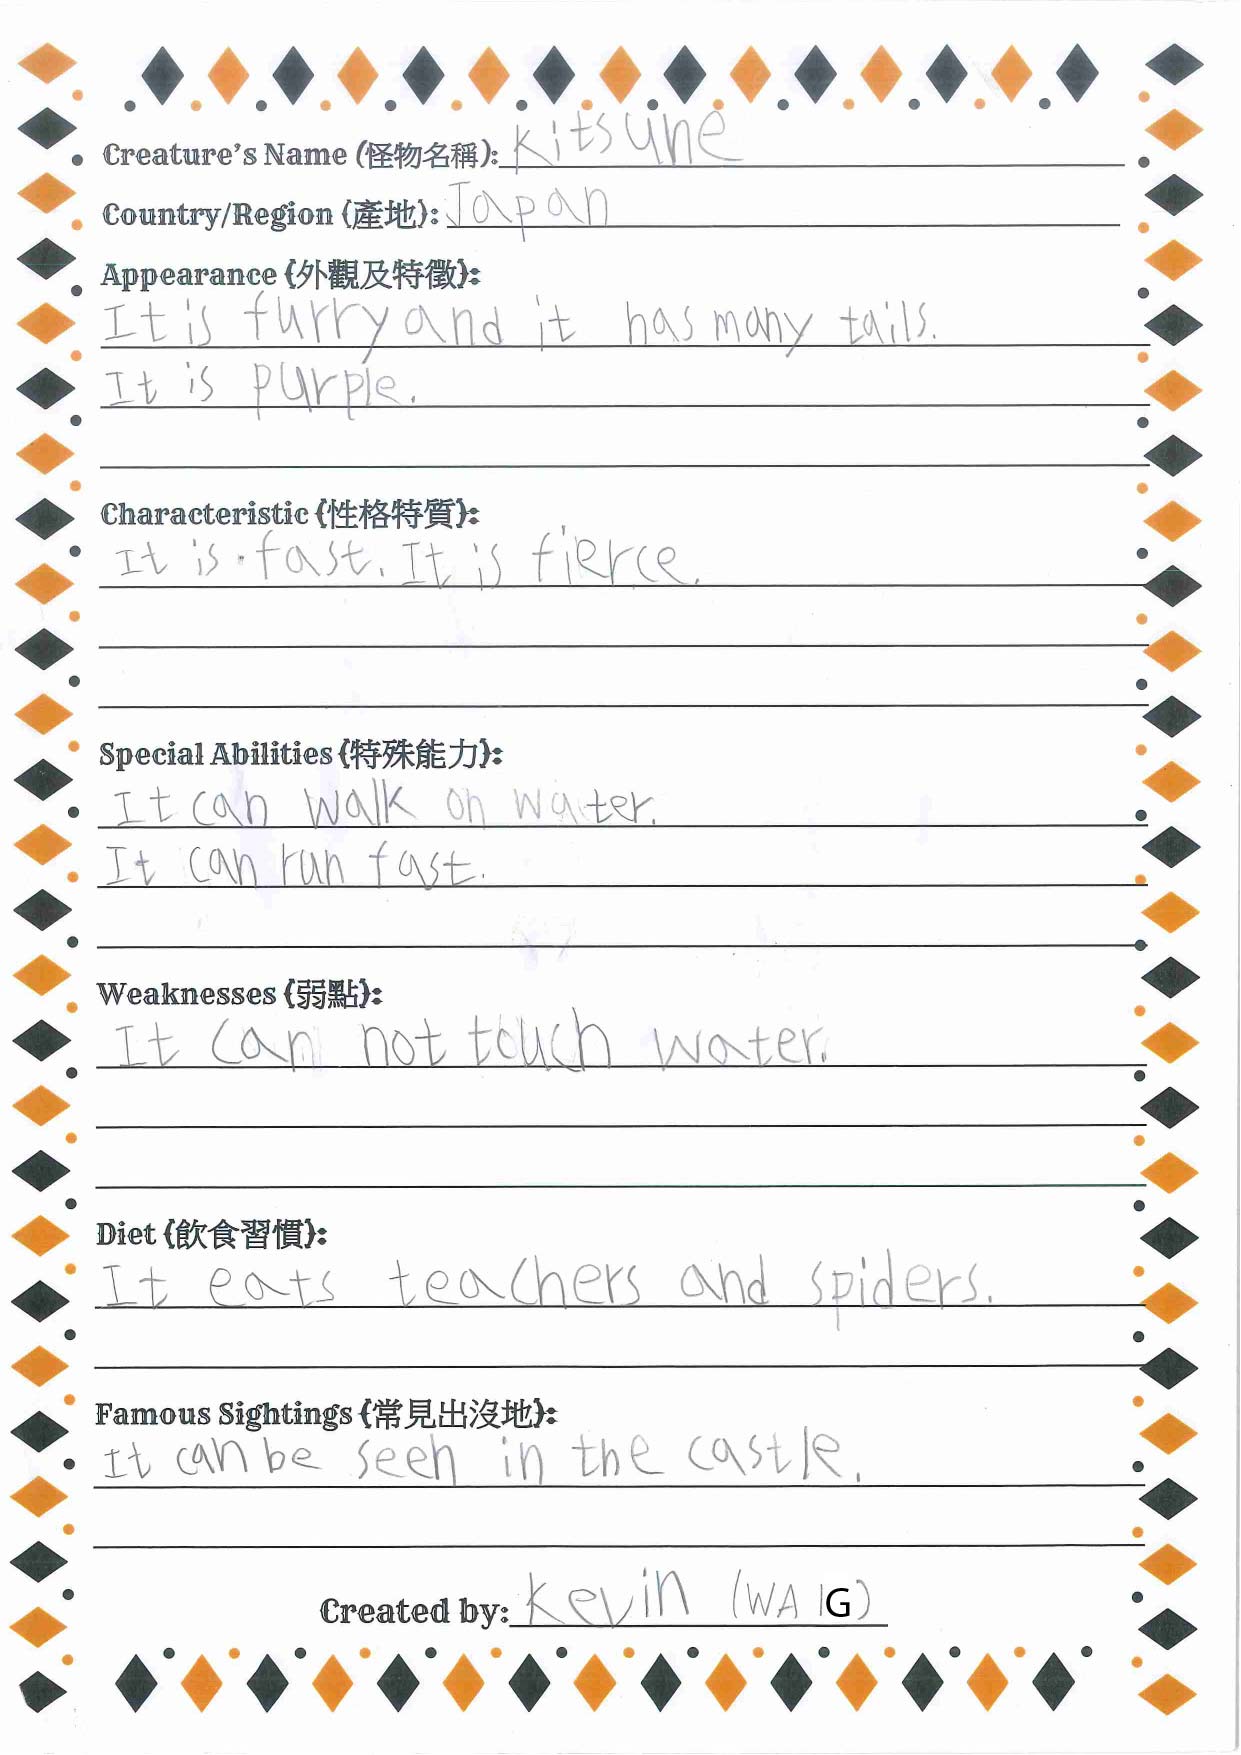 Creature's Name (怪物名稱): Kitsune
Country/Region (產地): Japan
Appearance (外觀及特徵):
It is furry and it has many tails.
It is purple.
Characteristic (性格特質):
It is fast. It is fierce.
Special Abilities (特殊能力):
It can walk on water.
It can run fast.
Weaknesses (弱點):
It can not touch water.
Diet (飲食習慣):
It eats teachers and spiders.
Famous Sightings (常見出沒地):
It can be seen in the castle.
Created by: Kevin (WA 1G)